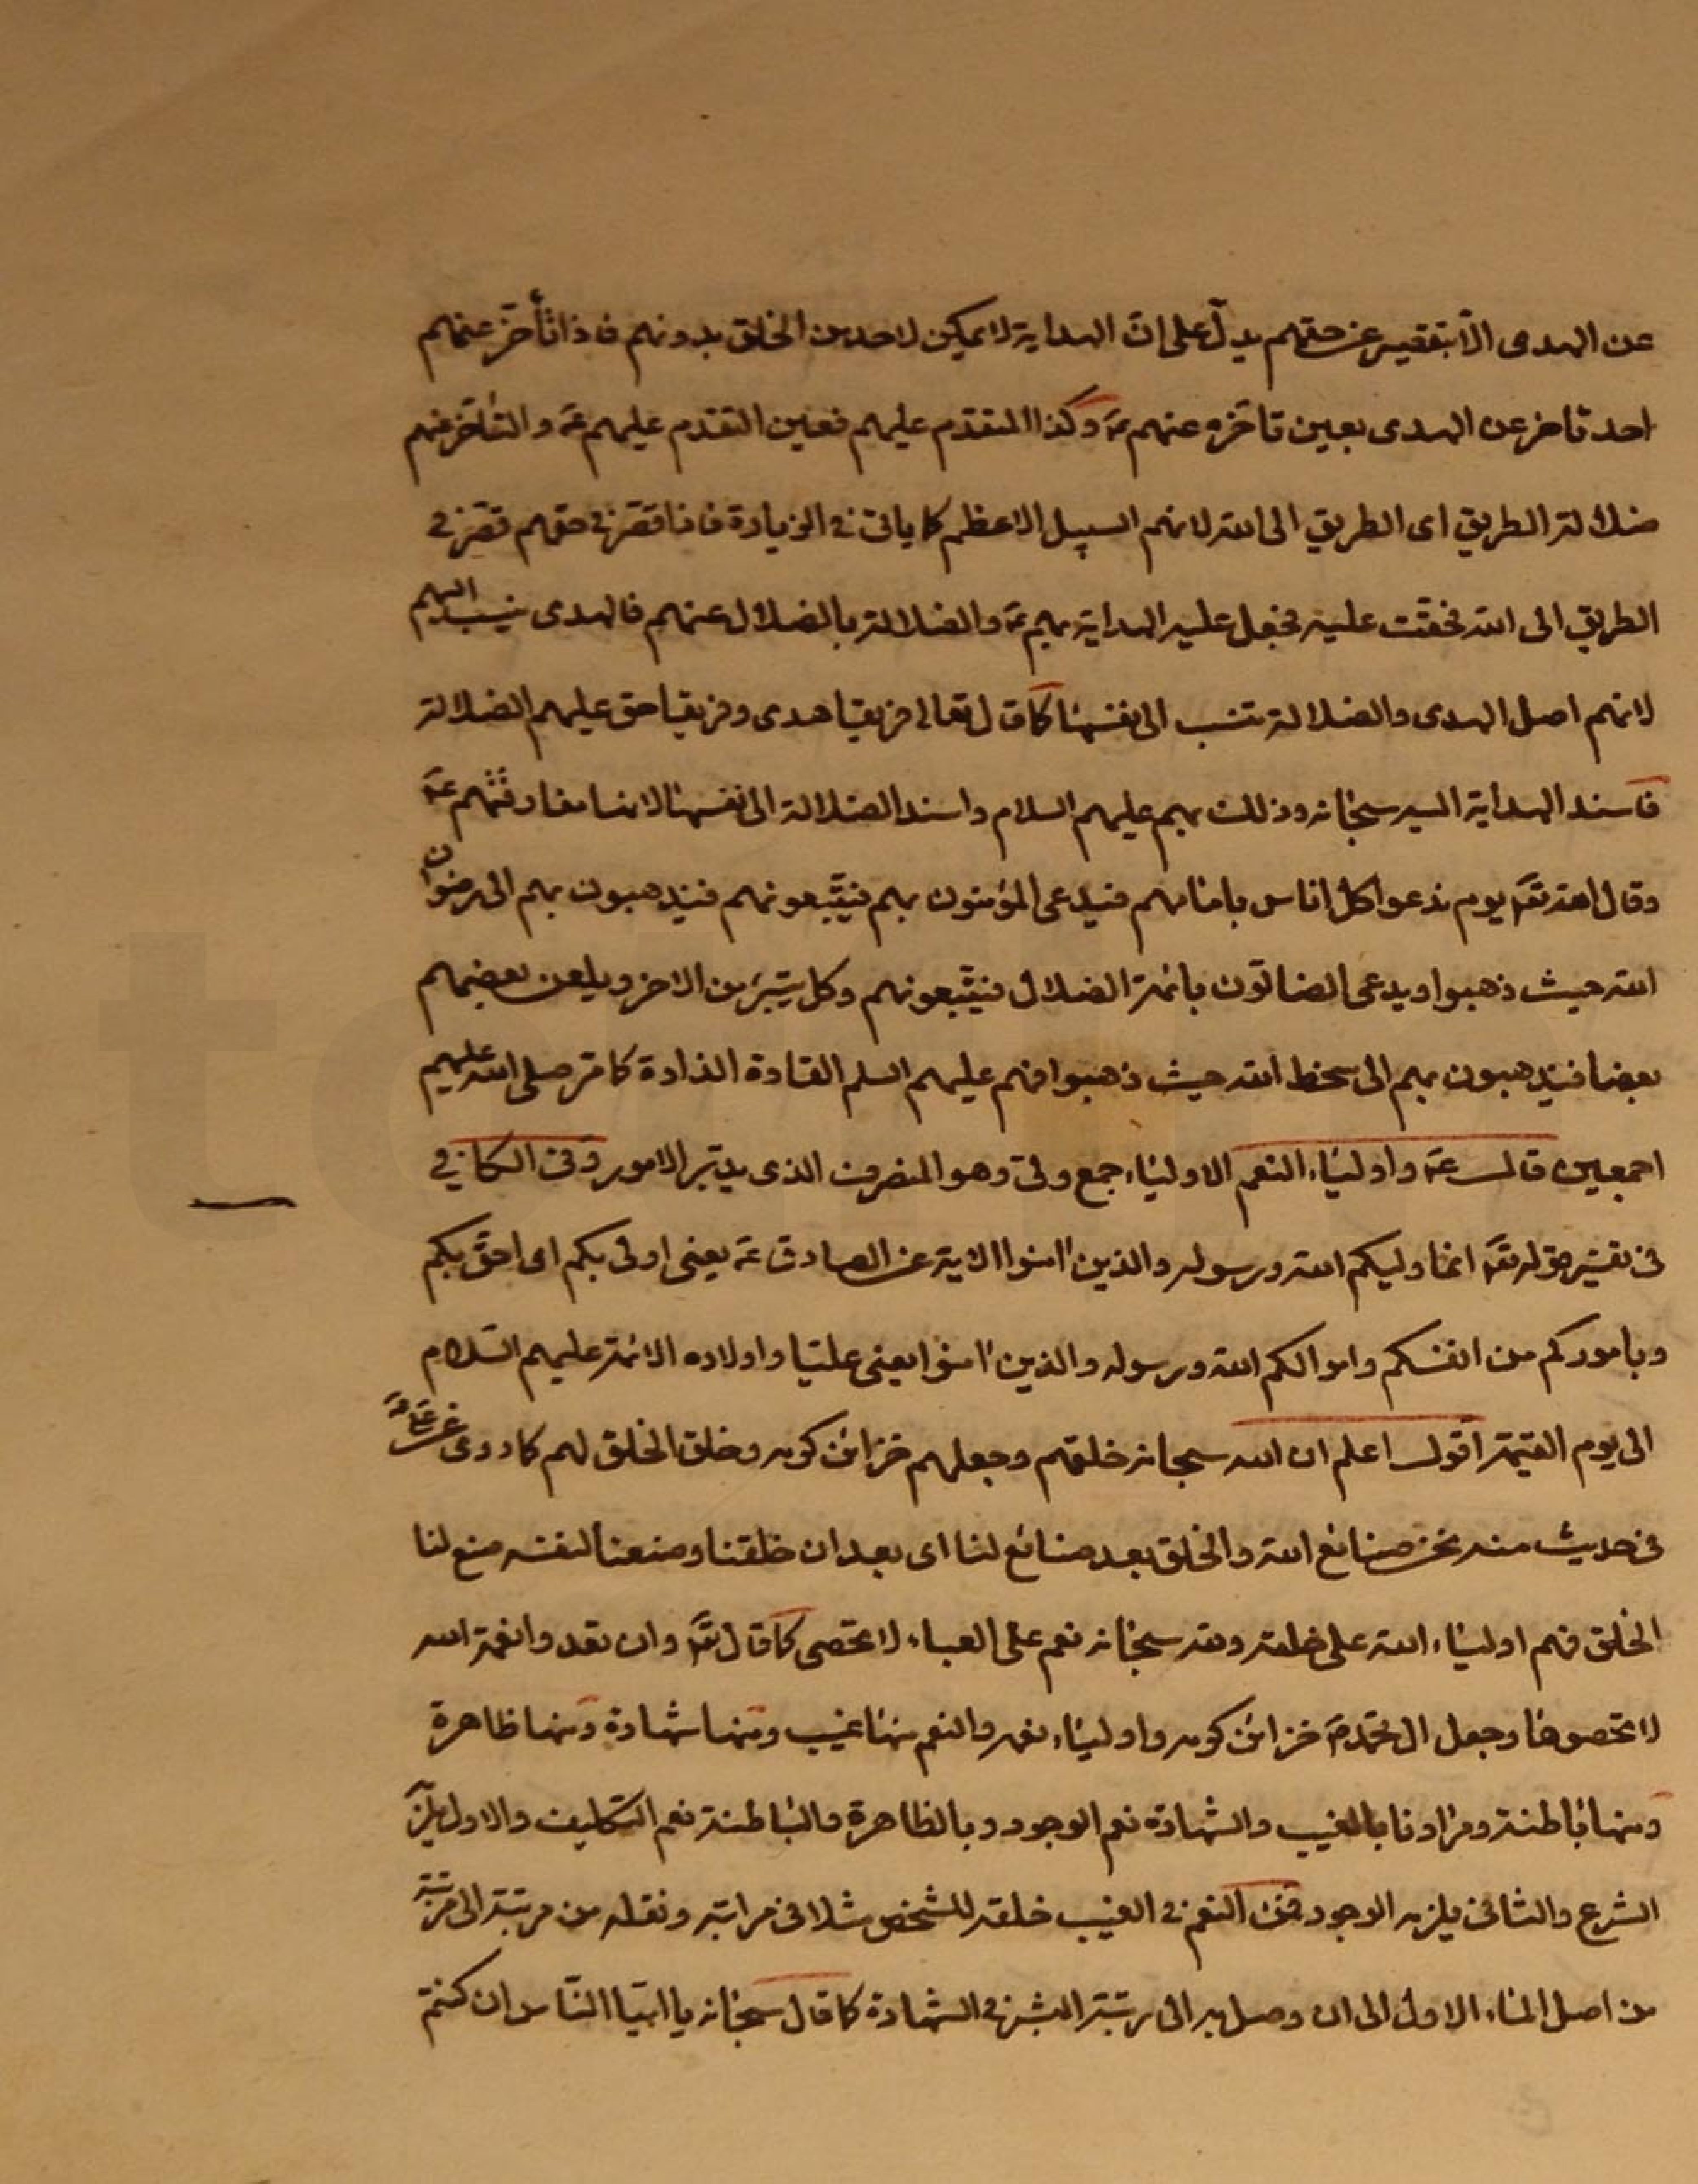 عن الهدى الا بتقصير عن حقهم يدلّ على انّ الهداية لا يمكن لاحد من الخلق بدونهم فاذا تأخّر عنهم
احد تاخر عن الهدى بعين تاخّره عنهم عۤ وكذا المتقدم عليهم فعين التقدم عليهم عۤ والتأخّر عنهم
ضلالة الطريق اى الطريق الى الله لانهم السبيل الاعظم كما ياتى فى الزيادة فاذا قصّر فى حقهم قصّر فى
الطريق الى الله فحقّت عليه فجعل عليه الهداية بهم عۤ والضلالة بالضلال عنهم فالهدى ينسب اليهم
لانهم اصل الهدى والضلالة تنسب الى نفسها كما قال تعالى فريقا هدى وفريقا حق عليهم الضلالة
فاسند الهداية اليه سبحانه وذلك بهم عليهم السلام واسند الضلالة الى نفسها لانها مفارقتهم عۤ
وقال الله تعۤ يوم ندعوا كل اناس بامامهم فيدعى المؤمنون بهم فيتّبعونهم فيذهبون بهم الى رضوان
الله حيث ذهبوا ويدعى الضالّون بائمة الضلال فيتّبعونهم وكل يتبرّء من الاخر ويلعن بعضهم
بعضا فيذهبون بهم الى سخط الله حيث ذهبوا فهم عليهم السلم القادة الذادة كما مرّ صلى الله عليهم
اجمعين قال عۤ واولياء النعم الاولياء جمع ولىّ وهو المتصرف الذى يدبّر الامور وفى الكافى
فى تفسير قوله تعۤ انما وليكم الله ورسوله والذين امنوا الاية عن الصادق عۤ يعنى اولى بكم اى احقّ بكم
وباموركم من انفسكم واموالكم الله ورسوله والذين امنوا يعنى عليّا واولاده الائمة عليهم السّلام
الى يوم القيمة اقول اعلم ان الله سبحانه خلقهم وجعلهم خزائن كرمه وخلق الخلق لهم كما روى عن علىّ عۤ
فى حديث منه نحن صنائع الله والخلق بعد صنائع لنا اى بعد ان خلقنا وصنعنا لنفسه صنع لنا
الخلق فهم اولياء الله على خلقه ولله سبحانه نعم على العباد لا تحصى كما قال تعۤ وان تعدوا نعمة الله
لا تحصوها وجعل ال محمّد صۤ خزائن كرمه واولياء نعمه والنعم منها غيب ومنها شهادة ومنها ظاهرة
ومنها باطنة ومرادنا بالغيب والشهادة نعم الوجود وبالظاهرة والباطنة نعم التكليف والاول يلزمه
الشرع والثانى يلزمه الوجود فمن النعم فى الغيب خلقه للشخص مثلا فى مراتبه ونقله من مرتبة الى مرتبة
من اصل الماء الاول الى ان وصل به الى رتبة البشر فى الشهادة كما قال سبحانه يا ايّها النّاس ان كنتم